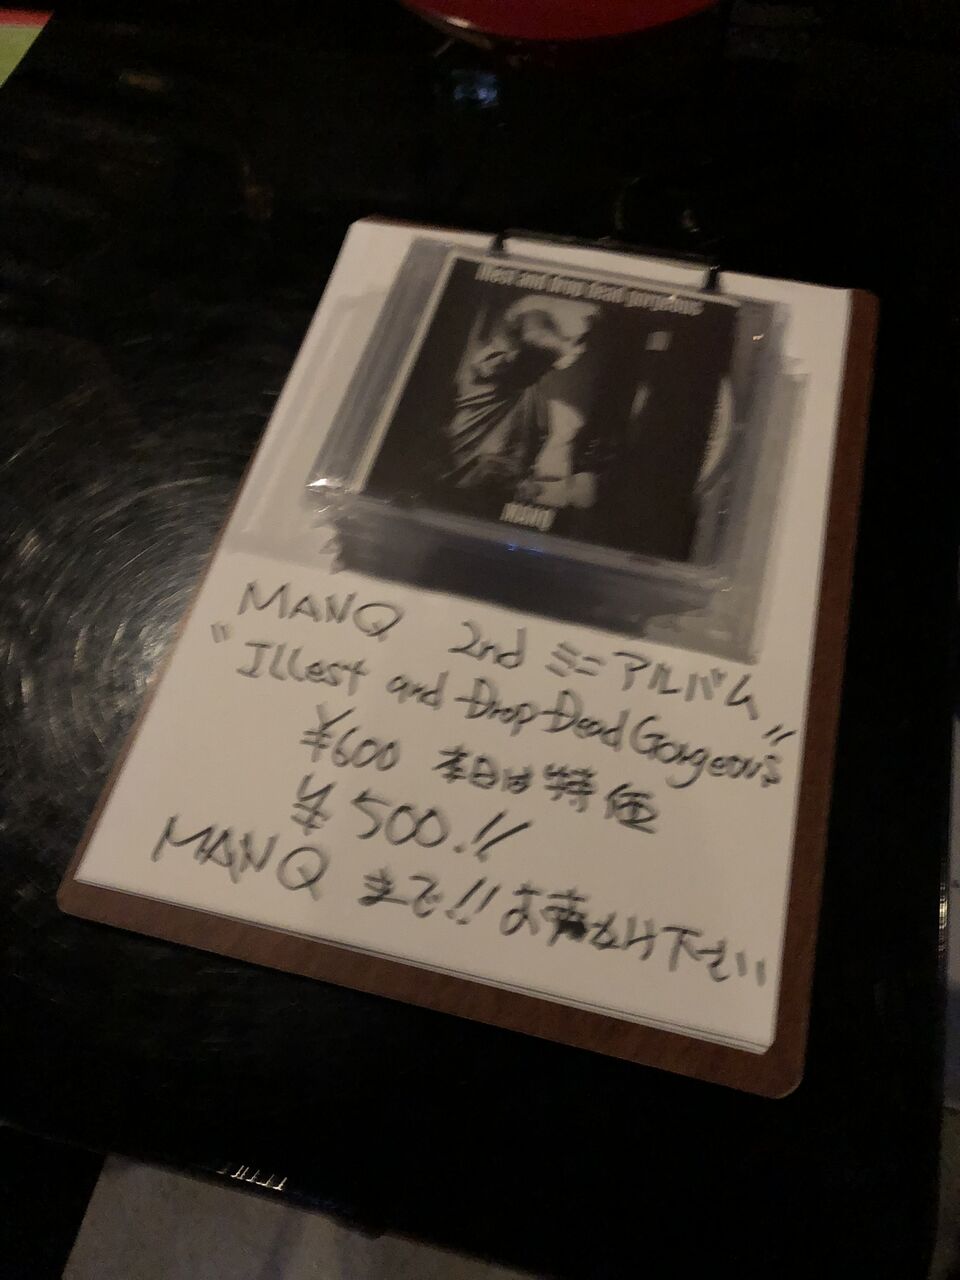 Illest and drop dead gorgeous
MANQ
MANQ 2nd ミニアルバム
"Illest and Drop Dead Gorgeous"
¥600 本日は特価
¥500!!
MANQ まで!! お声かけ下さい